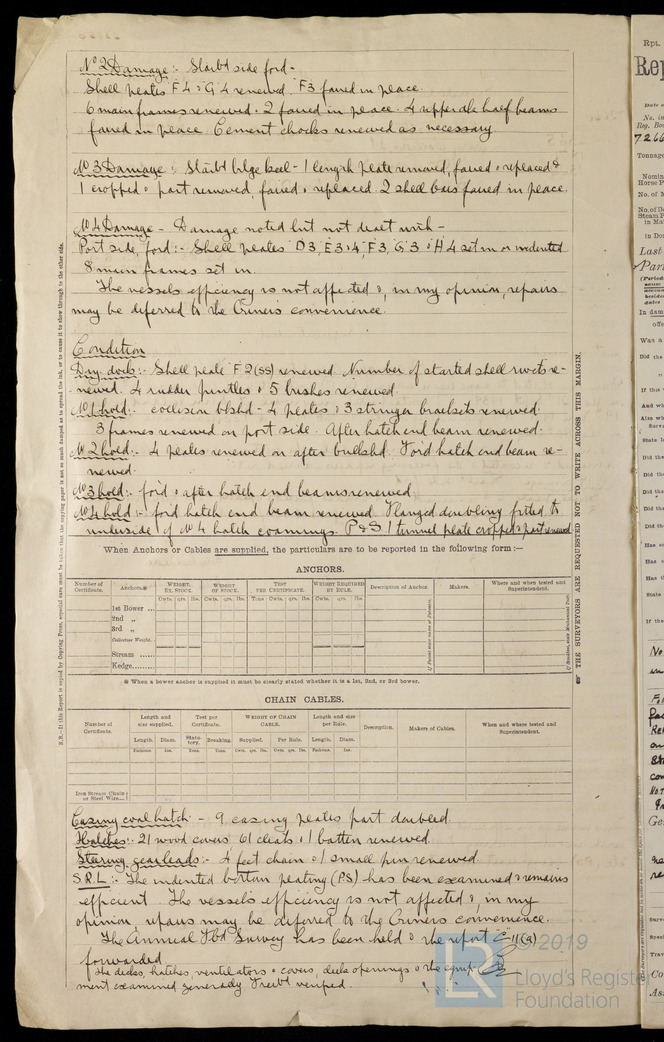 No 2 Damage :- Starbd side ford -
Shell plates F4 & G4 renewed. F3 faired in place.
6 main frames renewed & 2 faired in place. 4 upper dk half beams
faired in place. Cement chocks renewed as necessary
No 3 Damage :- Starbd bilge keel - 1 length plate removed, faired & replaced &
1 cropped & part removed, faired & replaced. 2 shell bars faired in place.
No 4 Damage - Damage noted but not dealt with -
Port side, ford :- Shell plates D3, E3 & 4, F3, G3 & H4 set in or indented
8 main frames set in.
The vessels efficiency is not affected &, in my opinion, repairs
may be deferred to the Owners convenience.
Condition
Dry dock :- Shell plate F2 (SS) renewed. Number of started shell rivets re-
newed. 4 rudder pintles & 5 bushes renewed.
No 1 hold :- collision blkhd - 4 plates & 3 stringer brackets renewed.
3 frames renewed on port side. After hatch end beam renewed.
No 2 hold :- 4 plates renewed on after bulkhd. Ford hatch end beam re-
newed.
No 3 hold :- ford & after hatch end beams renewed
No 4 hold :- ford hatch end beam renewed. Flanged doubling fitted to
underside of No 4 hatch coamings. P&S 1 tunnel plate cropped & part renewed
When Anchors or Cables are supplied, the particulars are to be reported in the following form :—
ANCHORS.
Number of Certificate. Anchors.※ WEIGHT. EX. STOCK. WEIGHT OF STOCK. TEST PER CERTIFICATE. WEIGHT REQUIRED BY RULE. Description of Anchor. Makers. Where and when tested and Superintendent.
Cwts. qrs. lbs. Cwts. qrs. lbs. Tons Cwts. qrs. lbs. Cwts. qrs. lbs.
1st Bower ...
2nd „
3rd „
Collective Weight.
Stream ......
Kedge.........
※ When a bower anchor is supplied it must be clearly stated whether it is a 1st, 2nd, or 3rd bower.
CHAIN CABLES.
Number of Certificate. Length and size supplied. Test per Certificate. WEIGHT OF CHAIN CABLE. Length and size per Rule. Description. Makers of Cables. When and where tested and Superintendent.
Length. Diam. Statutory. Breaking. Supplied. Per Rule. Length. Diam.
Fathoms. Ins. Tons. Tons. Cwts. qrs. lbs. Cwts. qrs. lbs. Fathoms. Ins.
Iron Stream Chain or Steel Wire...
Casing coal hatch - 9 casing plates part doubled.
Hatches :- 21 wood covers 61 cleats & 1 batten renewed.
Steering gear leads :- 4 feet chain & 1 small pin renewed.
S.R.L :- The indented bottom plating (PS) has been examined & remains
efficient. The vessels efficiency is not affected &, in my
opinion, repairs may be deferred to the Owners convenience.
The Annual Fbd Survey has been held & the report C 11(a)
forwarded
The decks, hatches, ventilators & covers, deck openings & the equip
ment examined generally Freebd verified.
THE SURVEYORS ARE REQUESTED NOT TO WRITE ACROSS THIS MARGIN.
© 2019
Lloyd's Register
Foundation
LR
Rpt.
Rep
7266
Tonnage
Last